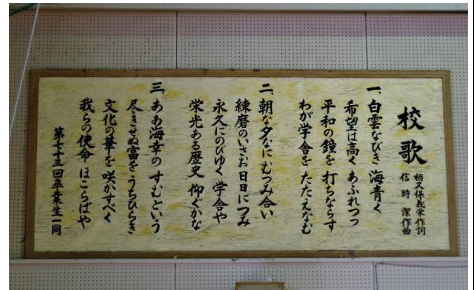 校歌
栃久保義栄作詞
信時 潔作曲
一、白雲なびき 海青く
希望は高く あふれつつ
平和の鐘を 打ちならす
わが学舎を たたえなむ
二、朝な夕なに むつみ合い
練磨のいさお 日日につみ
永久にのびゆく 学舎や
栄光ある歴史 仰ぐかな
三、ああ海幸の すむという
尽きせぬ富を うちひらき
文化の華を 咲かすべく
我らの使命 ほこらばや
第七十三回卒業生一同